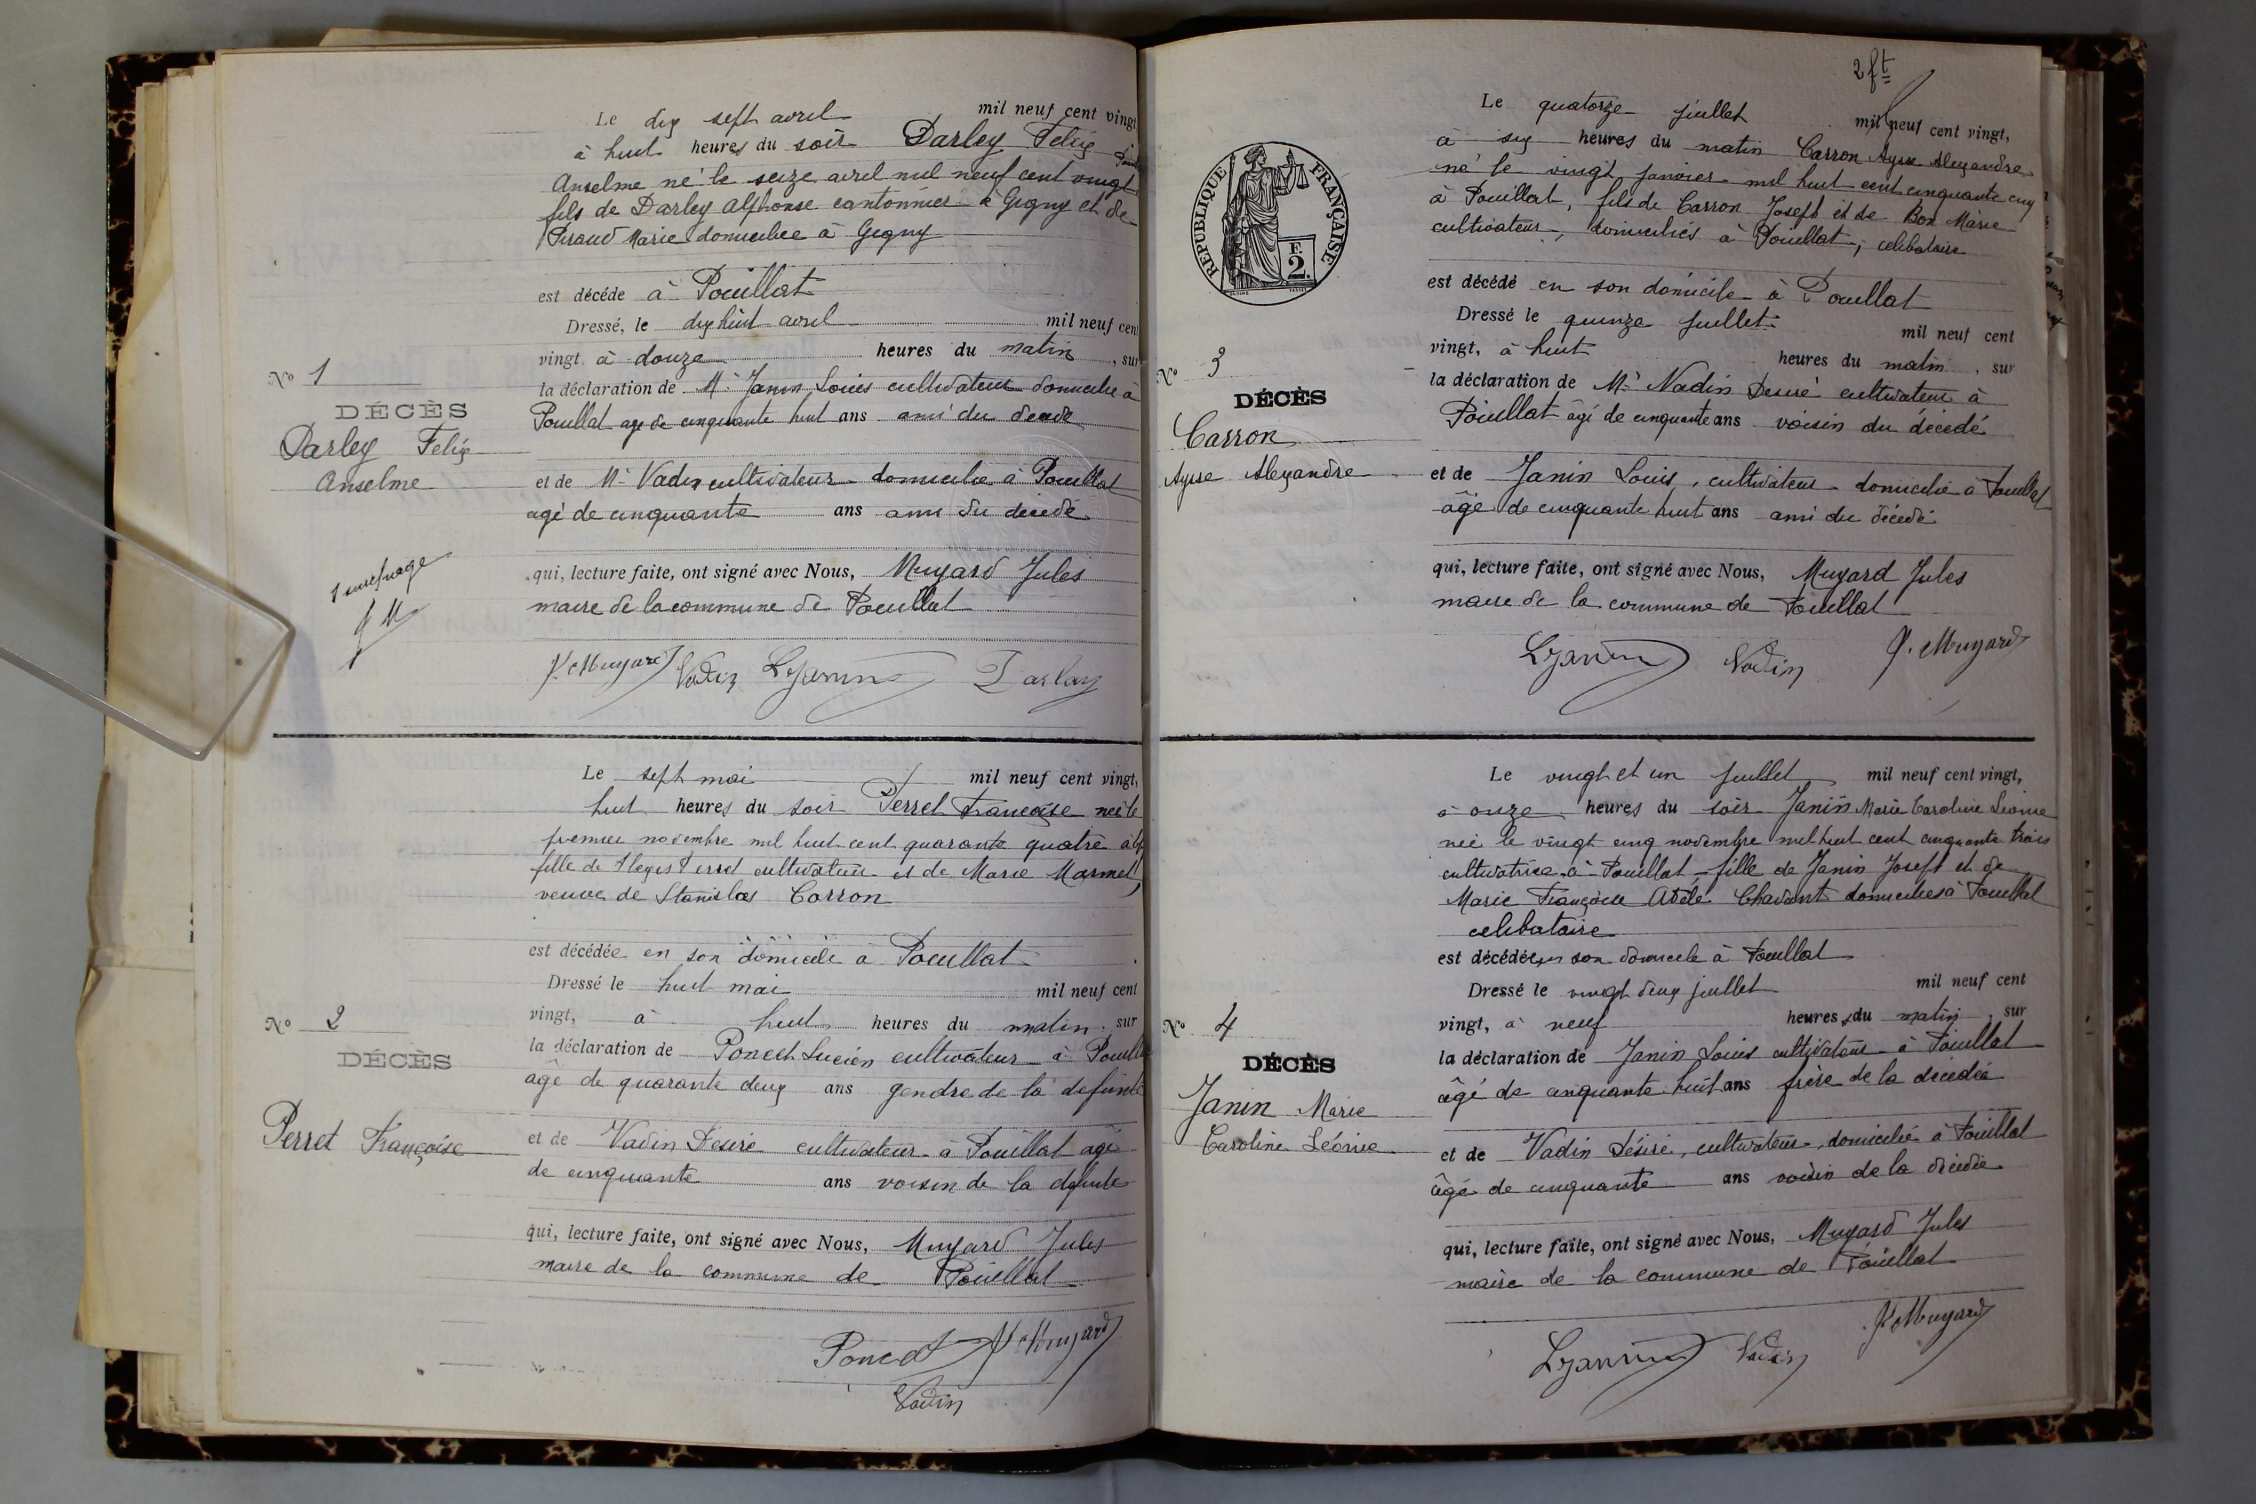 Le dix sept avril mil neuf cent vingt
à huit heures du soir Darley Felix
Anselme né le seize avril mil neuf cent vingt
fils de Darley Alphonse cantonnier à Gigny et de
Piraud Marie domiciliée à Gigny
est décédé à Pouillat
Dressé, le dix huit avril mil neuf cent
vingt à douze heures du matin, sur
la déclaration de Mr Janin Louis cultivateur domicilié à
Pouillat agé de cinquante huit ans ami du décédé
et de Mr Vadin cultivateur domicilié à Pouillat
agé de cinquante ans ami du décédé
qui, lecture faite, ont signé avec Nous, Muyard Jules
maire de la commune de Pouillat
J. Muyard Vadin L Janin Darlay
No 1
DÉCÈS
Darley Felix
Anselme
J M
Le sept mai mil neuf cent vingt,
huit heures du soir Perret Françoise née le
premier novembre mil huit cent quarante quatre à
fille de Perret cultivateur et de Marie Marmet,
veuve de Stanislas Carron
est décédée en son domicile à Pouillat
Dressé le huit mai mil neuf cent
vingt, à huit heures du matin, sur
la déclaration de Poncet Lucien cultivateur à Pouillat
agé de quarante deux ans gendre de la défunte
et de Vadin Desiré cultivateur à Pouillat agé
de cinquante ans voisin de la défunte
qui, lecture faite, ont signé avec Nous, Muyard Jules
maire de la commune de Pouillat
Poncet J. Muyard
Vadin
No 2
DÉCÈS
Perret Françoise
2 ft
Le quatorze juillet mil neuf cent vingt,
à six heures du matin Carron Alexandre
né le vingt janvier mil huit cent cinquante cinq
à Pouillat, fils de Carron Joseph et de Box Marie
cultivateur, domiciliés à Pouillat, célibataire
est décédé en son domicile à Pouillat
Dressé le quinze juillet mil neuf cent
vingt, à huit heures du matin, sur
la déclaration de Mr Vadin Desiré cultivateur à
Pouillat âgé de cinquante ans voisin du décédé
et de Janin Louis, cultivateur domicilié à Pouillat
âgé de cinquante huit ans ami du décédé
qui, lecture faite, ont signé avec Nous, Muyard Jules
maire de la commune de Pouillat
L Janin Vadin J. Muyard
RÉPUBLIQUE FRANÇAISE
F. 2.
No 3
DÉCÈS
Carron
Alexandre
Le vingt et un juillet mil neuf cent vingt,
à onze heures du soir Janin Marie Caroline Léonie
née le vingt cinq novembre mil huit cent cinquante trois
cultivatrice à Pouillat fille de Janin Joseph et de
Marie Françoise Adèle Chavant domiciliés à Pouillat
célibataire
est décédée en son domicile à Pouillat
Dressé le vingt deux juillet mil neuf cent
vingt, à neuf heures du matin, sur
la déclaration de Janin Louis cultivateur à Pouillat
âgé de cinquante huit ans frère de la décédée
et de Vadin Désiré, cultivateur, domicilié à Pouillat
âgé de cinquante ans voisin de la décédée
qui, lecture faite, ont signé avec Nous, Muyard Jules
maire de la commune de Pouillat
L Janin Vadin J. Muyard
No 4
DÉCÈS
Janin Marie
Caroline Léonie